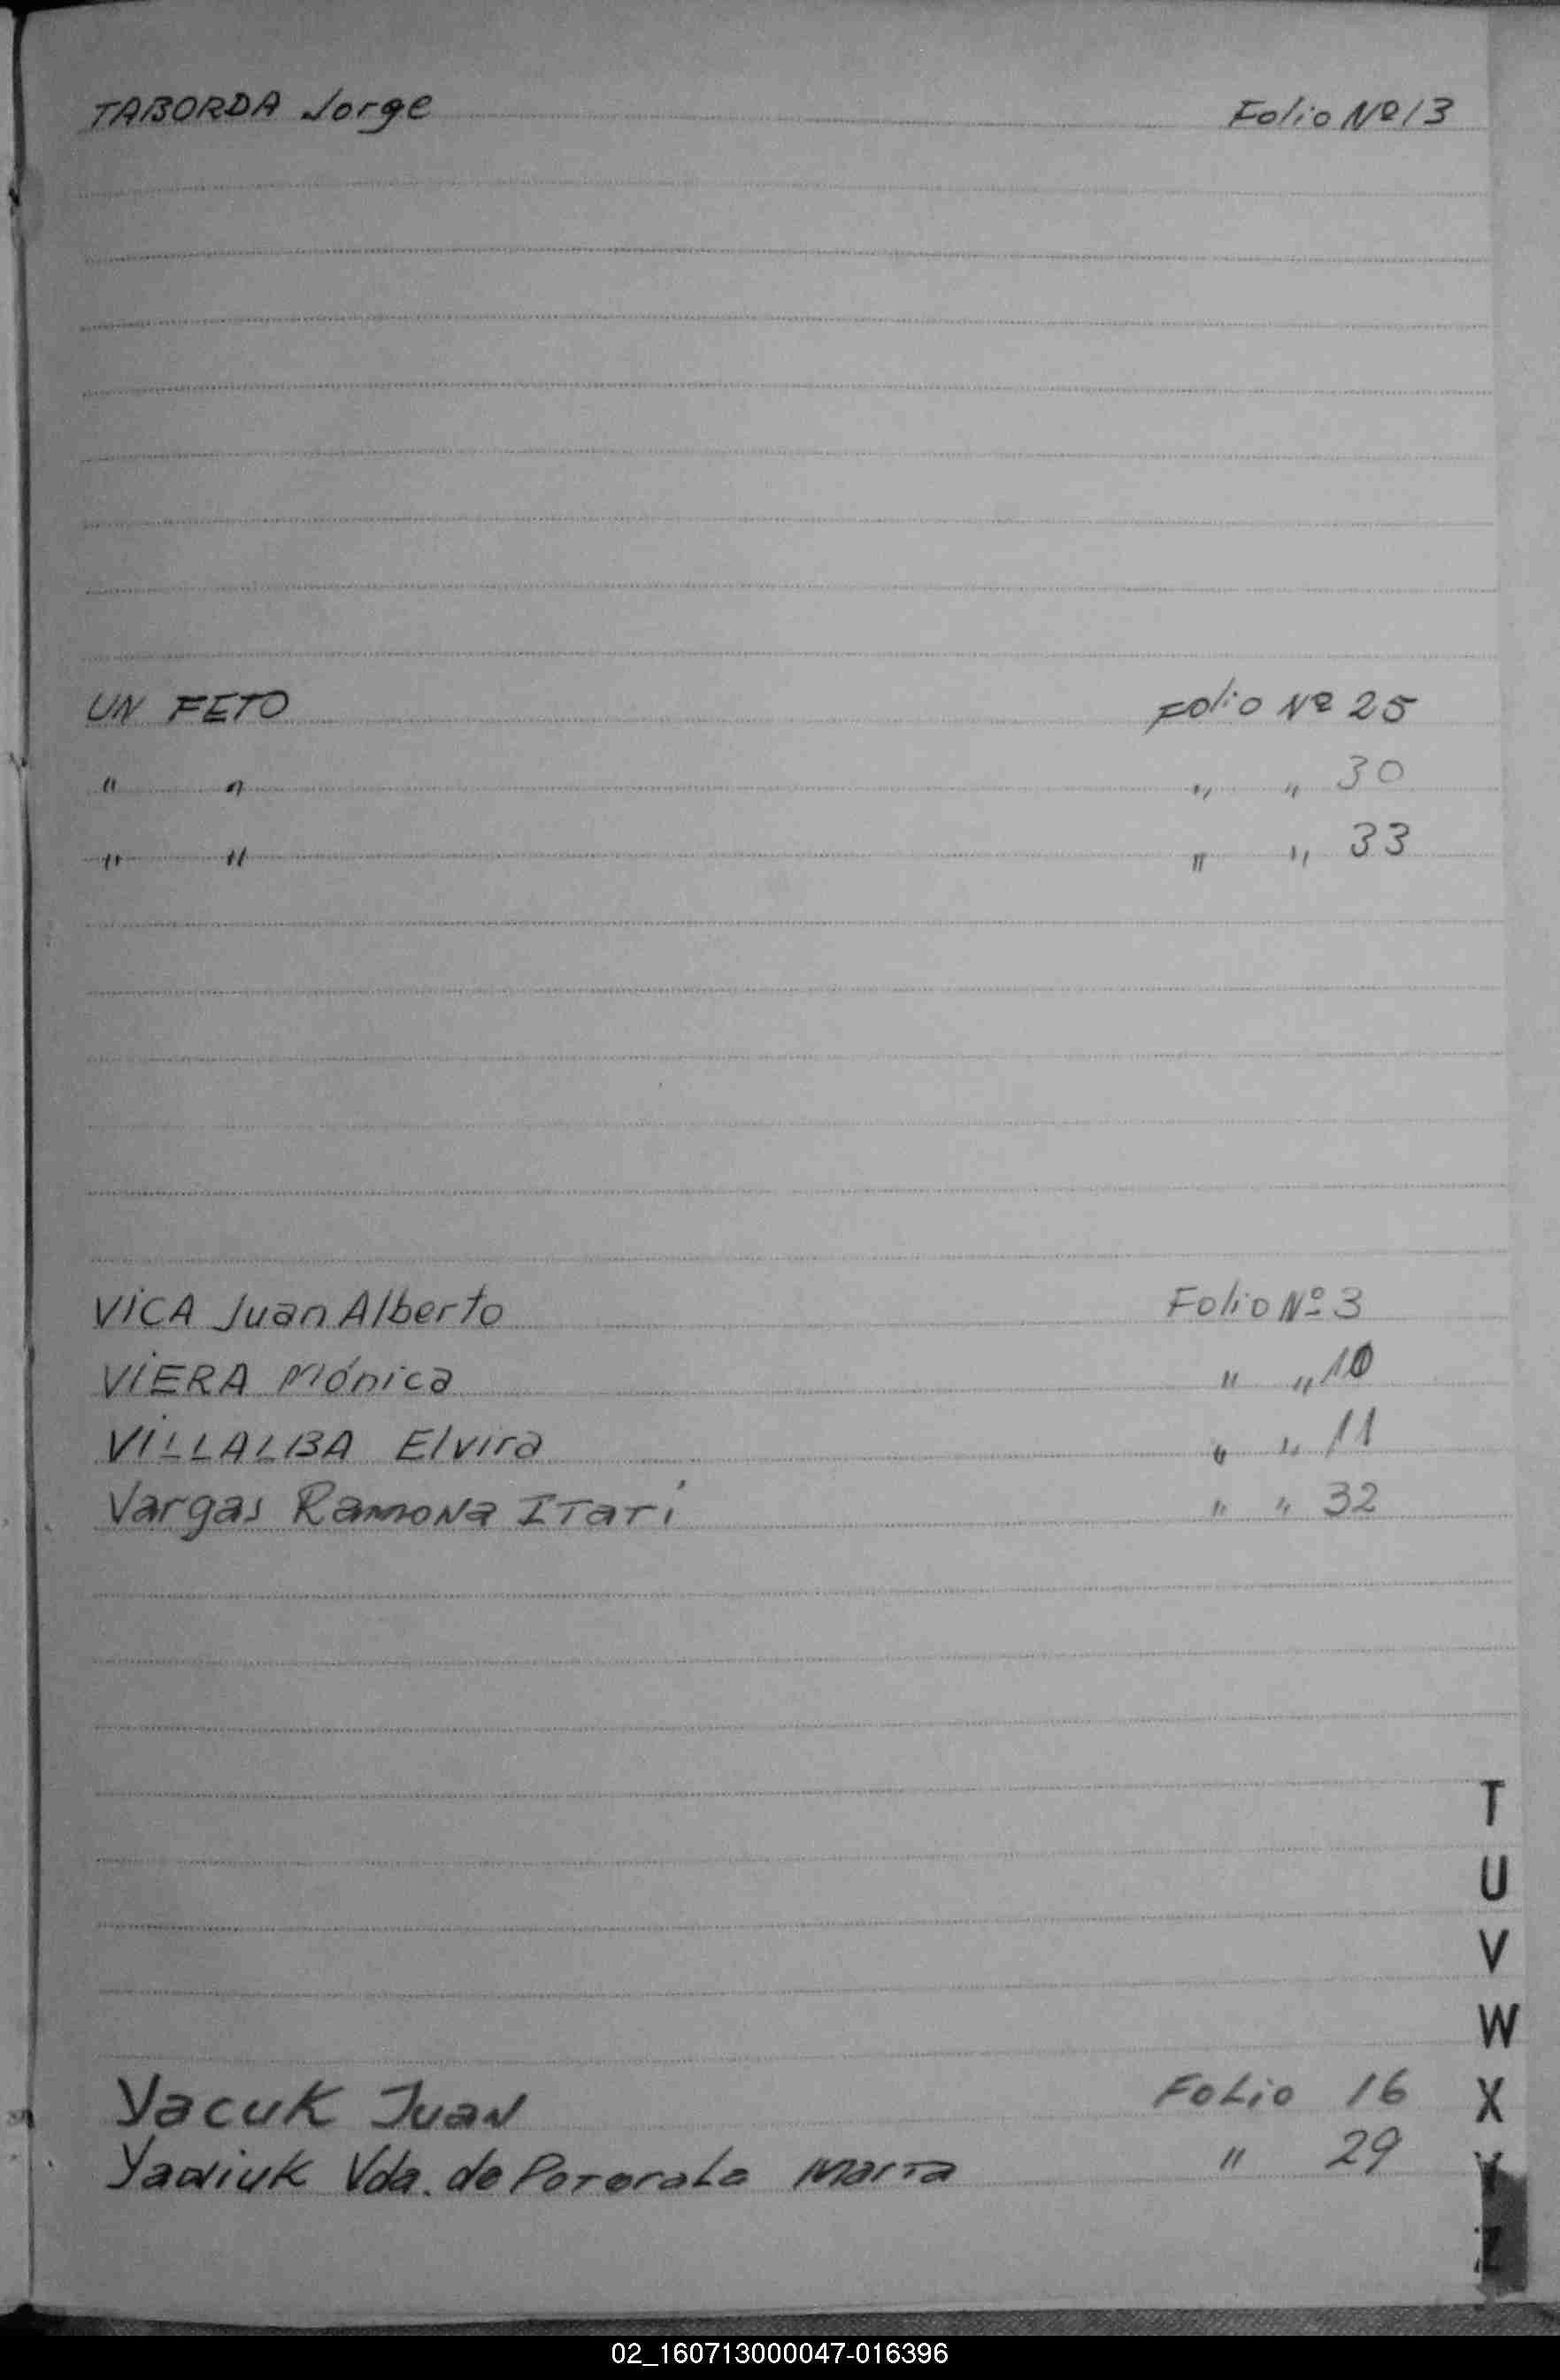 TABORDA Jorge Folio Nº 13
UN FETO Folio Nº 25
" " " " 30
" " " " 33
VICA Juan Alberto Folio Nº 3
VIERA Mónica " " 10
VILLALBA Elvira " " 11
Vargas Ramona Itati " " 32
T
U
V
W
Yacuk Juan Folio 16
X
Vda. de Maria " 29
Y
Z
02_160713000047-016396